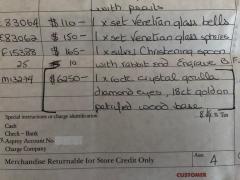 with pearls
E83064 $110- 1 x set Venetian glass bells
E83062 $150- 1 x set Venetian glass spheres
F15388 $165- 1 x silver Christening spoon
25 $10 with rabbit end Engrave B
M13279 $6250- 1 x rock crystal gorilla
diamond eyes, 18ct gold on
petrified wood base
Special instructions or charge identification
Cash
Check - Bank
Asprey Account No
Charge Company
Merchandise Returnable for Store Credit Only
4
CUSTOMER